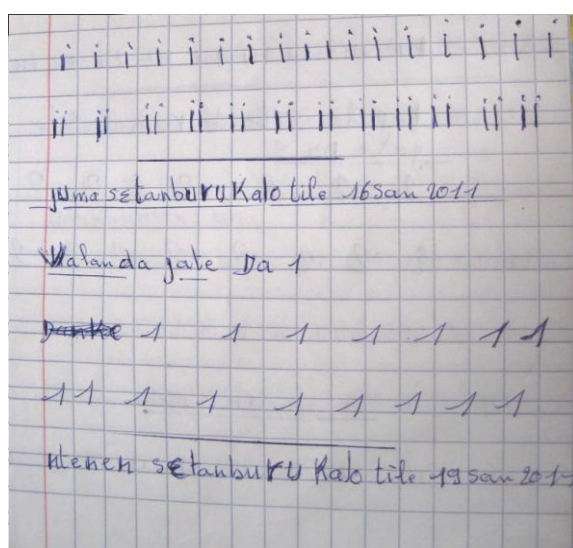 i i i i i i i i i i i i i i i i i
ii ii ii ii ii ii ii ii ii ii ii ii
juma sɛtanburu Kalo tile 16 San 2011
Walanda jate Da 1
1 1 1 1 1 1 1
11 1 1 1 1 1 1 1
ntenen sɛtanburu Kalo tile 19 san 201